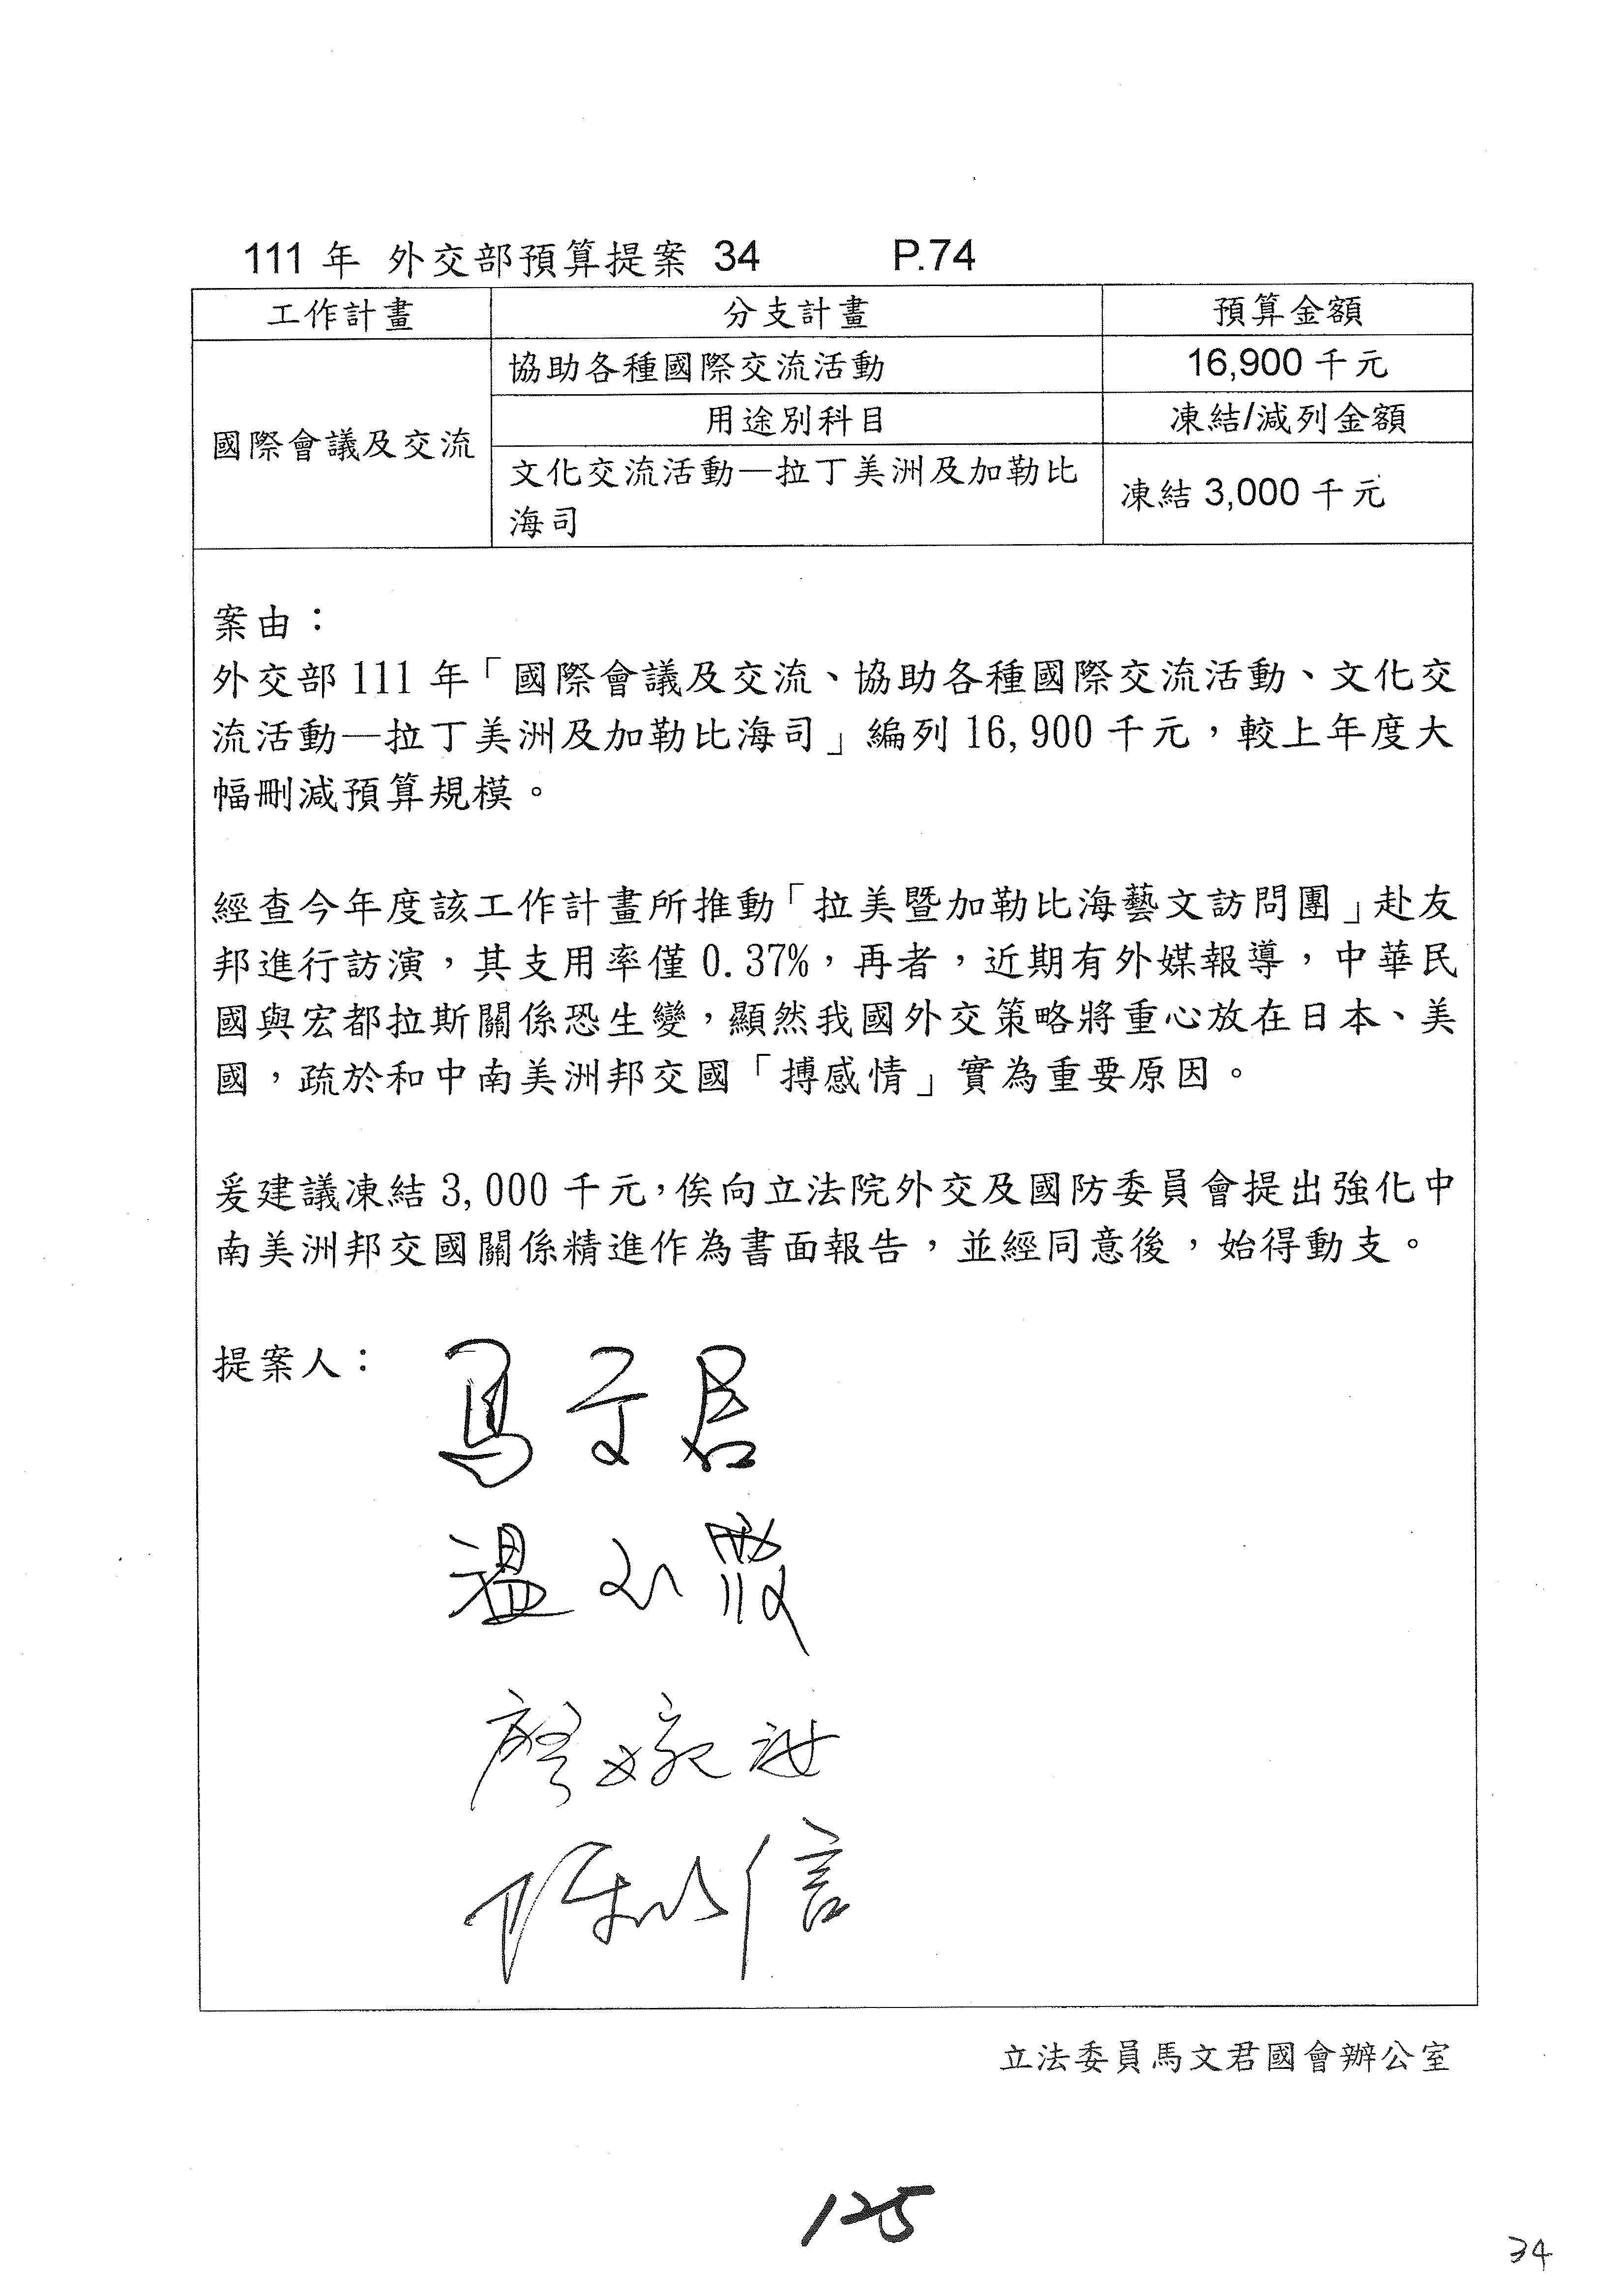 111 年 外交部預算提案 34 P.74
工作計畫 分支計畫 預算金額
協助各種國際交流活動 16,900 千元
國際會議及交流 用途別科目 凍結/減列金額
文化交流活動—拉丁美洲及加勒比
海司 凍結 3,000 千元
案由：
外交部 111 年「國際會議及交流、協助各種國際交流活動、文化交
流活動—拉丁美洲及加勒比海司」編列 16,900 千元，較上年度大
幅刪減預算規模。
經查今年度該工作計畫所推動「拉美暨加勒比海藝文訪問團」赴友
邦進行訪演，其支用率僅 0.37%，再者，近期有外媒報導，中華民
國與宏都拉斯關係恐生變，顯然我國外交策略將重心放在日本、美
國，疏於和中南美洲邦交國「搏感情」實為重要原因。
爰建議凍結 3,000 千元，俟向立法院外交及國防委員會提出強化中
南美洲邦交國關係精進作為書面報告，並經同意後，始得動支。
提案人：
馬文君
溫玉霞
廖婉汝
陳以信
立法委員馬文君國會辦公室
125
34